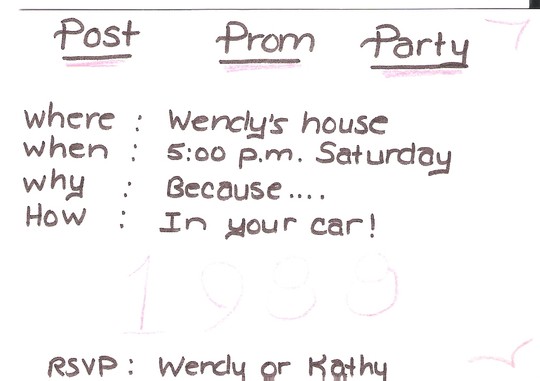 Post Prom Party
where : Wendy's house
when : 5:00 p.m. Saturday
why : Because....
How : In your car!
1989
RSVP : Wendy or Kathy